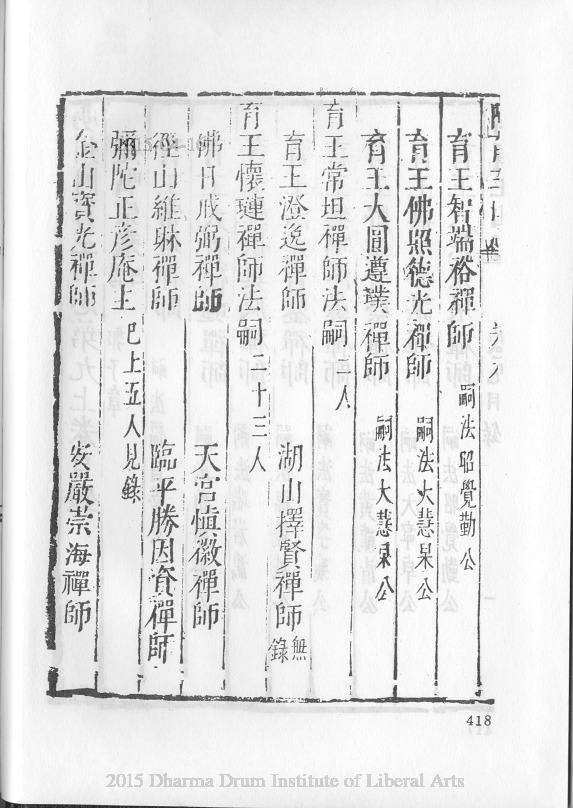 育王智端裕禪師 嗣法昭覺勤公
育王佛照德光禪師 嗣法大慧杲公
育王大圓遵璞禪師 嗣法大慧杲公
育王常坦禪師法嗣二人
育王澄逸禪師 湖山擇賢禪師 無錄
育王懷璉禪師法嗣二十三人
佛日戒弼禪師 天宮慎徽禪師
徑山維琳禪師 臨平勝因資禪師
彌陀正彥庵主 已上五人見錄
金山寶光禪師 安嚴崇海禪師
418
2015 Dharma Drum Institute of Liberal Arts